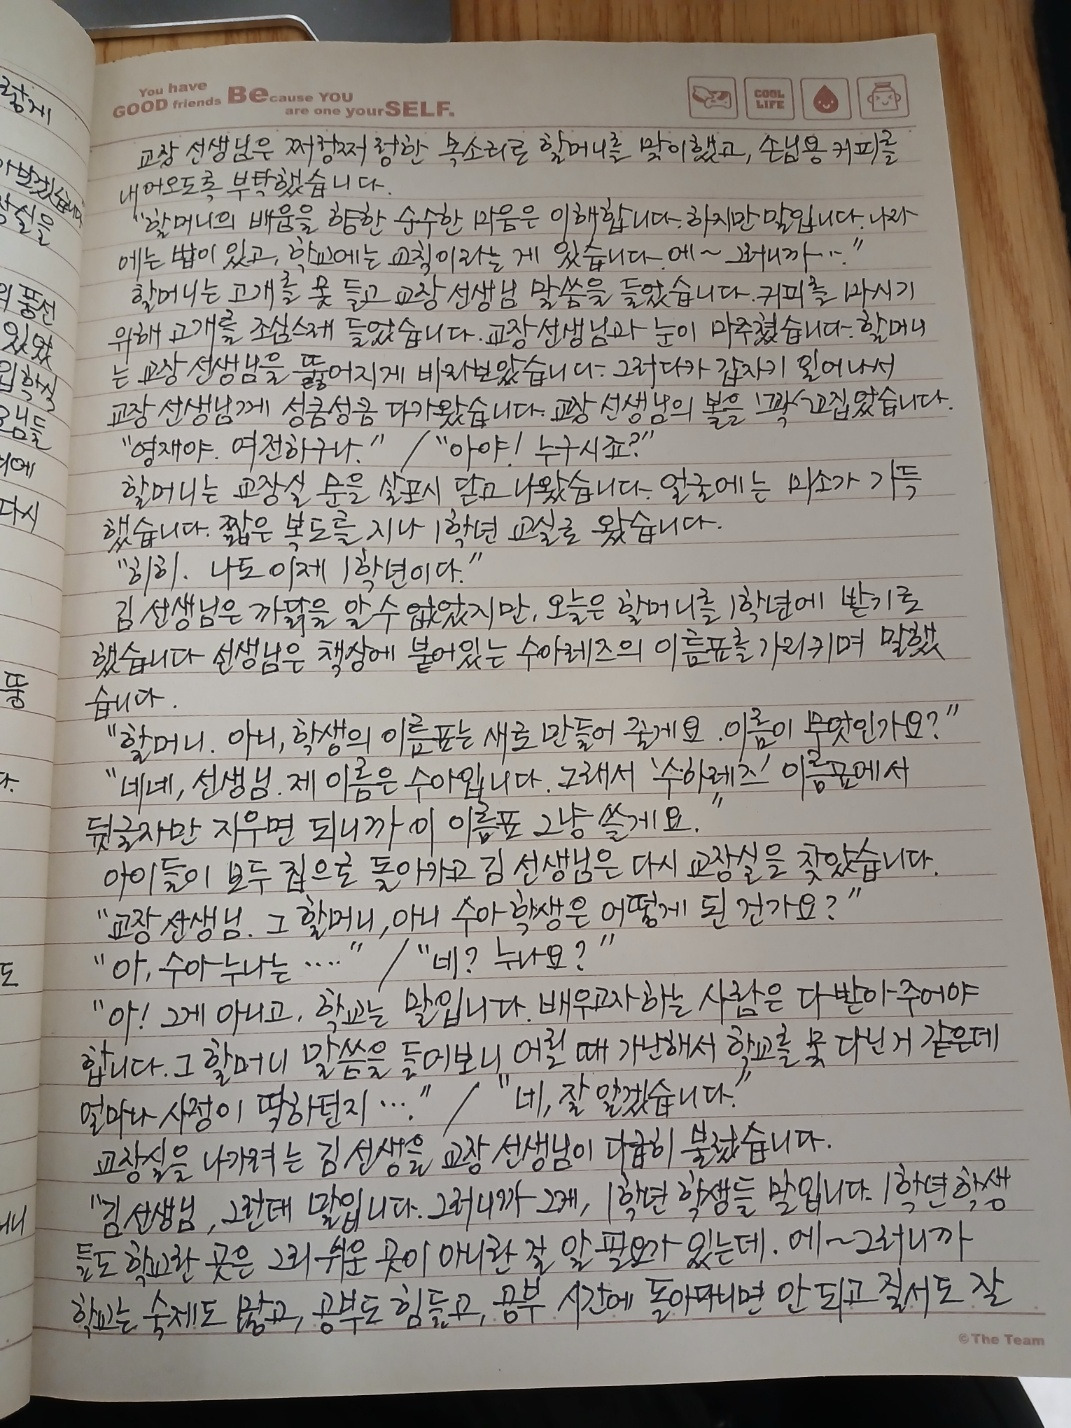 You have
GOOD friends Because YOU
are one yourSELF.
COOL LIFE
교장 선생님은 쩌렁쩌렁한 목소리로 할머니를 맞이했고, 손님용 커피를
내어오도록 부탁했습니다.
"할머니의 배움을 향한 순수한 마음은 이해합니다. 하지만 말입니다. 나라
에는 법이 있고, 학교에는 교칙이라는 게 있습니다. 에~ 그러니까…."
할머니는 고개를 못 들고 교장 선생님 말씀을 들었습니다. 커피를 마시기
위해 고개를 조심스레 들었습니다. 교장 선생님과 눈이 마주쳤습니다. 할머니
는 교장 선생님을 뚫어지게 바라보았습니다. 그러다가 갑자기 일어나서
교장 선생님께 성큼성큼 다가왔습니다. 교장 선생님의 볼을 꼬집었습니다.
"영재야. 여전하구나." / "아야! 누구시죠?"
할머니는 교장실 문을 살포시 닫고 나왔습니다. 얼굴에는 미소가 가득
했습니다. 짧은 복도를 지나 1학년 교실로 왔습니다.
"히히. 나도 이제 1학년이다."
김 선생님은 까닭을 알 수 없었지만, 오늘은 할머니를 1학년에 받기로
했습니다 선생님은 책상에 붙어있는 수아레즈의 이름표를 가리키며 말했
습니다.
"할머니. 아니, 학생의 이름표는 새로 만들어 줄게요. 이름이 무엇인가요?"
"네네, 선생님. 제 이름은 수아입니다. 그래서 '수아레즈' 이름표에서
뒷글자만 지우면 되니까 이 이름표 그냥 쓸게요."
아이들이 모두 집으로 돌아가고 김 선생님은 다시 교장실을 찾았습니다.
"교장 선생님. 그 할머니, 아니 수아 학생은 어떻게 된 건가요?"
"아, 수아 누나는 …." / "네? 누나요?"
"아! 그게 아니고, 학교는 말입니다. 배우고자 하는 사람은 다 받아 주어야
합니다. 그 할머니 말씀을 들어보니 어릴 때 가난해서 학교를 못 다닌 거 같은데
얼마나 사정이 딱하던지 …." / "네, 잘 알겠습니다."
교장실을 나가려는 김 선생을 교장 선생님이 다급히 불렀습니다.
"김 선생님, 그런데 말입니다. 그러니까 그게, 1학년 학생들 말입니다. 1학년 학생
들도 학교란 곳은 그리 쉬운 곳이 아니란 걸 알 필요가 있는데. 에~ 그러니까
학교는 숙제도 많고, 공부도 힘들고, 공부 시간에 돌아다니면 안 되고 질서도 잘
©The Team